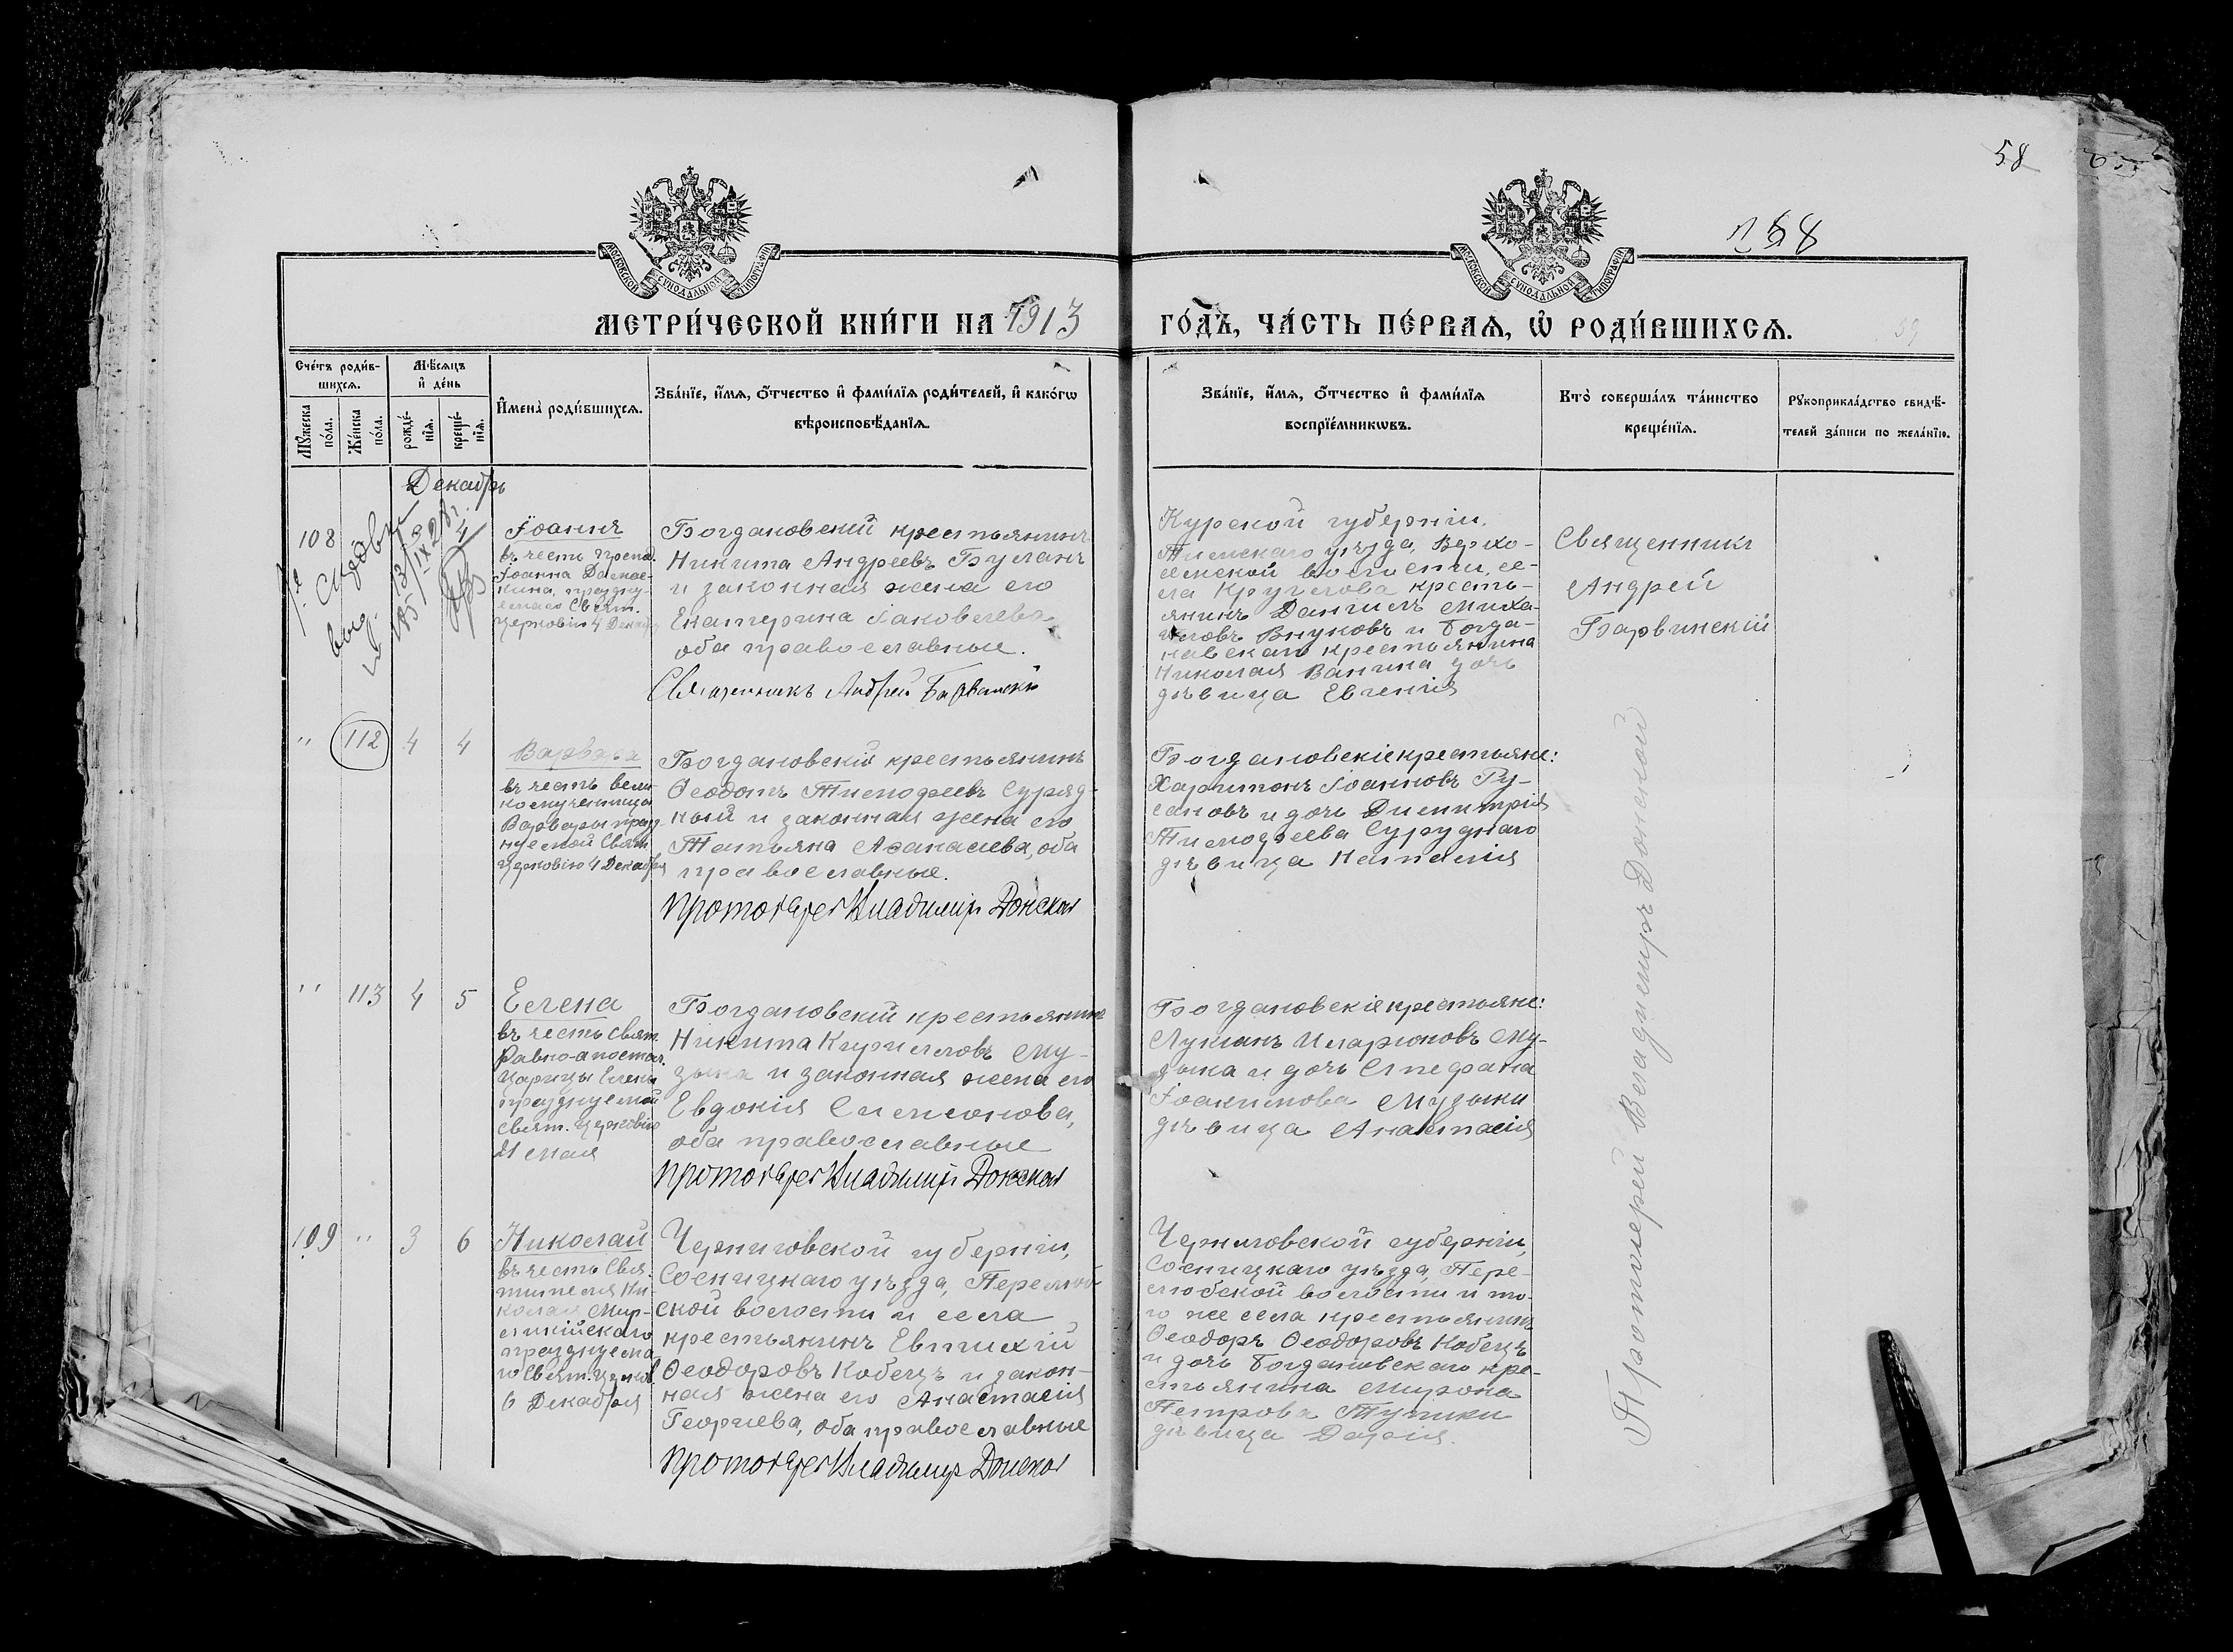 58
158
МОСКОВСКОЙ СѴНОДАЛЬНОЙ ТИПОГРАФІИ
МОСКОВСКОЙ СѴНОДАЛЬНОЙ ТИПОГРАФІИ
МЕТРИ́ЧЕСКОЙ КНИ́ГИ НА 1913 ГО́ДЪ, ЧА́СТЬ ПЕ́РВАѦ, Ѡ҆ РОДИ́ВШИХСѦ.
59
Сче́тъ роди́в-
шихсѧ.
Мꙋ́жеска
по́ла.
Же́нска
по́ла.
Мѣ́сѧцъ
и҆ де́нь
рожде́-
нїѧ.
креще́-
нїѧ.
И҆мена̀ роди́вшихсѧ.
Зва́нїе, и҆́мѧ, ѻ҆́тчество и҆ фами́лїѧ роди́телей, и҆ како́гѡ
вѣроисповѣ́данїѧ.
Зва́нїе, и҆́мѧ, ѻ҆́тчество и҆ фами́лїѧ
воспрїе́мникѡвъ.
Кто̀ соверша́лъ та́инство
креще́нїѧ.
Рꙋкоприкла́дство свидѣ́-
телей за́писи по жела́нїю.
Декабрь
108
4
Іоаннъ
въ честь препод.
Іоанна Дамас-
кина, праздну-
емаго Свят.
Церковію 4 Декабр
Богдановскій крестьянинъ
Никита Андреевъ Буланъ
и законная жена его
Екатерина Іаковлева
оба православные.
Священникъ Андрей Барвинскій
Курской губерніи,
Тимскаго уѣзда, Верхо-
семской волости, се-
ла Круглова кресть-
янинъ Даніилъ Миха-
иловъ Внуковъ и Богда-
новскаго крестьянина
Николая Ванина дочь
дѣвица Евгенія
Священникъ
Андрей
Барвинскій
" 112 4 4
Варвара
въ честь вели-
комученицы
Варвары празд-
нуемой Свят.
Церковію 4 Декабря
Богдановскій крестьянинъ
Ѳеодотъ Тимофеевъ Суряд-
ный и законная жена его
Татьяна Аѳанасіева, оба
православные.
Протоіерей Владимиръ Донской
Богдановскіе крестьяне:
Харитонъ Іоанновъ Ру-
сановъ и дочь Димитрія
Тимофеева Суруднаго
дѣвица Наталія
Протоіерей Владимиръ Донской
" 113 4 5
Елена
въ честь Свят.
Равно-апостол.
Царицы Елены
празднуемой
Свят. Церковію
21 Мая
Богдановскій крестьянинъ
Никита Кирилловъ Му-
зыка и законная жена его
Евдокія Симеонова,
оба православные
Протоіерей Владимиръ Донской
Богдановскіе крестьяне:
Лукіанъ Иларіоновъ Му-
зыка и дочь Стефана
Іоакимова Музыки
дѣвица Анастасія
109 " 3 6
Николай
въ честь Свя-
тителя Ни-
колая Мир-
ликійскаго
празднуема-
го Свят. Церков.
6 Декабря
Черниговской губерніи,
Сосницкаго уѣзда, Перелюб-
ской волости и села
крестьянинъ Евтихій
Ѳеодоровъ Кобецъ и закон-
ная жена его Анастасія
Георгіева, оба православные
Протоіерей Владимиръ Донской
Черниговской губерніи,
Сосницкаго уѣзда, Пере-
любской волости и то-
го же села крестьянинъ
Ѳеодоръ Ѳеодоровъ Кобецъ
и дочь Богдановскаго кре-
стьянина Мирона
Петрова Тупики
дѣвица Дарія.